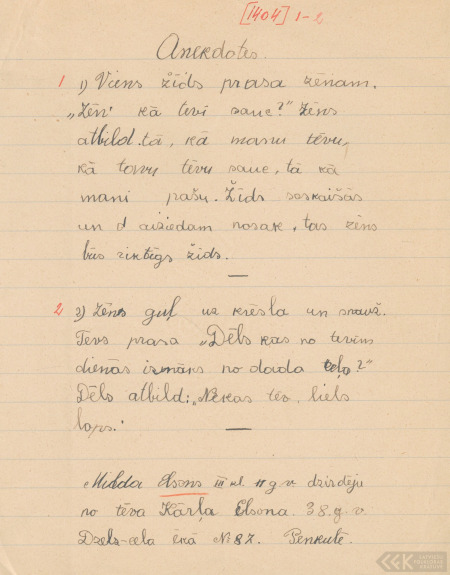 [1404] 1-2
Anekdotes.
1 1) Viens žīds prasa zēnam.
„Zēn' kā tevi sauc?" Zēns
atbild tā, kā manu tēvu,
kā tavu tēvu sauc, tā kā
mani pašu. Žīds saskaišās
un aiziedam nosaka, tas zēns
būs riktīgs žids.
2 2) Zēns guļ uz krēsla un snauž.
Tevs prasa „Dēls kas no tevim
dienās iznāks no tāda
Dēls atbild: „Nekas tēv, liels
lops."
Milda Elsons III kl. 11 g. v. dzirdēju
no tēva Kārļa Elsona. 38. g. v.
Dzelz-ceļa ēkā № 87. Penkulē.
LATVIEŠU
FOLKLORAS
KRĀTUVE